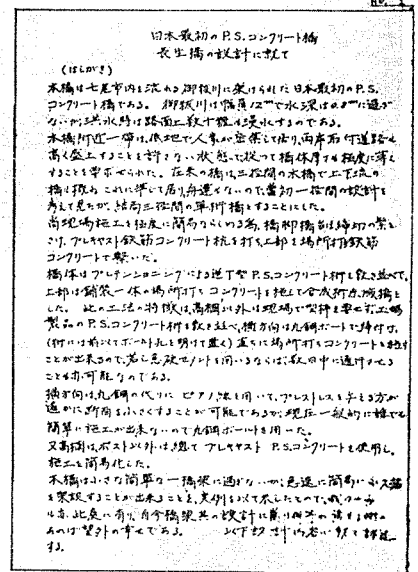 No. 1
日本最初のP.S.コンクリート橋
長生橋の設計に就て
(はしがき)
本橋は七尾市内を流れる御祓川に架けられた日本最初のP.S.
コンクリート橋である。御祓川は幅員12mで水深は0.8mに過ぎ
ないが洪水時は路面上数十糎も浸水するのである。
本橋附近一帯は低地で人家が密集して居り、両岸取付道路を
高く盛上することを許さない状態で、従って橋体厚さも極度に薄く
することを要求せられた。在来の橋は三径間の木橋で上下流の
橋も概ねこれに準じて居り、舟運もないので最初一径間の設計を
考えて見たが、結局三径間の単桁橋とすることにした。
尚現場施工を極度に簡易ならしめる為、橋脚橋台は締切の繁を
さけ、プレキャスト鉄筋コンクリート杭を打ち、上部を場所打鉄筋
コンクリートで繋いだ。
橋体はプレテンショニングによる逆T型P.S.コンクリート桁を敷き並べて、
上部は舗装一体の場所打ちコンクリートを施して合成桁床版橋と
した。此の工法の特徴は、高欄以外は現場で型枠を要せず、工場
製品のP.S.コンクリート桁を敷き並べ、横方向は丸鋼ボルトで締付け、
(桁には前以てボールト孔を明けて置く)直ちに場所打コンクリートを施す
ことが出来るので、若し急硬セメントを用いるならば、数日中に通行させる
ことも亦可能なのである。
横方向は丸鋼の代りにピアノ線を用いて、プレストレスを与える方が
遥かに断面を小さくすることが可能であるが、現在一般的に誰でも
簡単に施工が出来ないので丸鋼ボールトを用いた。
又高欄は、ポスト以外は総てプレキャストP.S.コンクリートを使用し、
施工を簡易化した。
本橋は小さな簡単な一橋梁に過ぎないが、急速に簡易に永久橋
を架設することが出来ることを、実例を以て示したもので、
此処に有り、自今橋梁其の設計に
あれば望外の幸せである。以下設計内容に就て詳述
する。